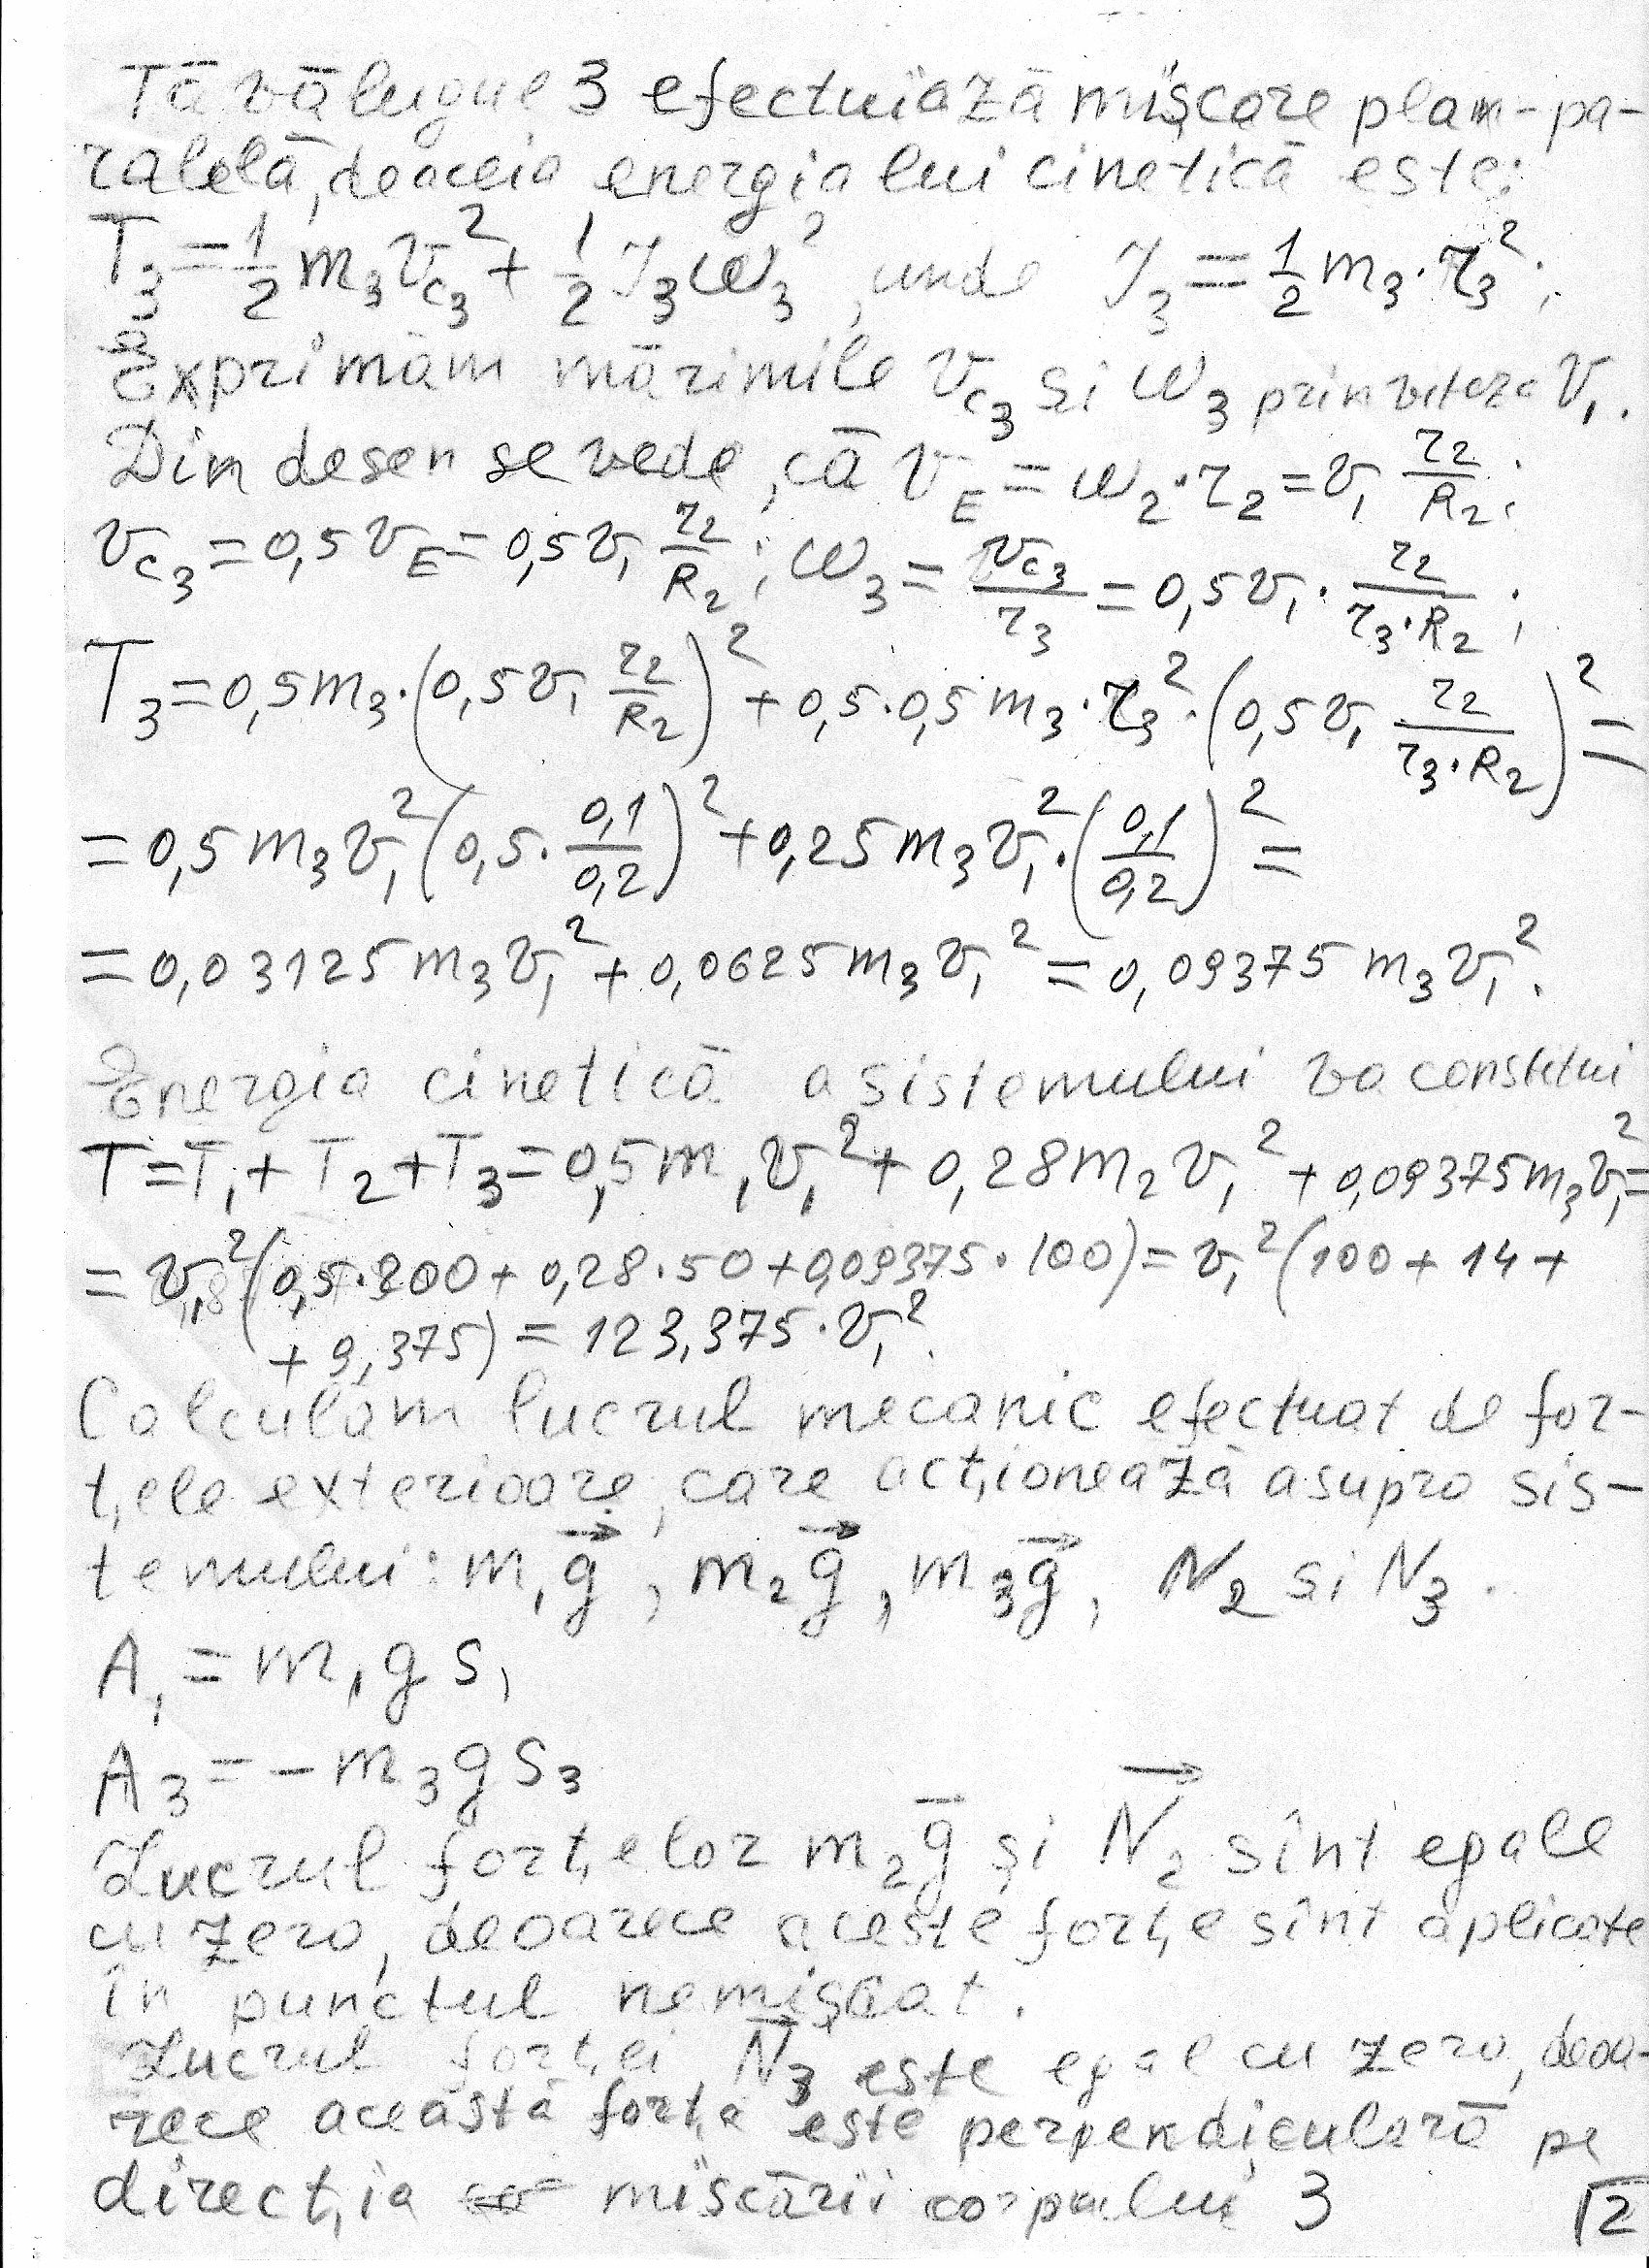 Tāvālugul 3 efectuiază mișcare plan-pa-
ralelā, deaceia energia lui cinetică este:
T₃ = 1/2 m₃ v_c₃² + 1/2 J₃ ω₃², unde J₃ = 1/2 m₃ · r₃²;
Exprimām mārimile v_c₃ si ω₃ prin viteza v₁.
Din desen se vede, cā v_E = ω₂ · r₂ = v₁ r₂/R₂;
v_c₃ = 0,5 v_E = 0,5 v₁ r₂/R₂; ω₃ = v_c₃/r₃ = 0,5 v₁ · r₂/(r₃·R₂);
T₃ = 0,5 m₃ · (0,5 v₁ r₂/R₂)² + 0,5 · 0,5 m₃ · r₃² · (0,5 v₁ r₂/(r₃·R₂))² =
= 0,5 m₃ v₁² (0,5 · 0,1/0,2)² + 0,25 m₃ v₁² · (0,1/0,2)² =
= 0,03125 m₃ v₁² + 0,0625 m₃ v₁² = 0,09375 m₃ v₁².
Energia cinetică a sistemului va constitui
T = T₁ + T₂ + T₃ = 0,5 m₁ v₁² + 0,28 m₂ v₁² + 0,09375 m₃ v₁² =
= v₁² (0,5 · 200 + 0,28 · 50 + 0,09375 · 100) = v₁² (100 + 14 +
+ 9,375) = 123,375 · v₁².
Calculām lucrul mecanic efectuat de for-
țele exterioare, care acționeazā asupra sis-
temului: m₁g⃗, m₂g⃗, m₃g⃗, N₂ si N₃.
A₁ = m₁ g s₁
A₃ = - m₃ g s₃
Lucrul forțelor m₂g⃗ și N⃗₂ sînt egale
cu zero, deoarece aceste forțe sînt aplicate
în punctul nemișcat.
Lucrul forței N⃗₃ este egal cu zero, deoa-
rece aceastā forța este perpendiculară pe
direcția miscării corpului 3
2